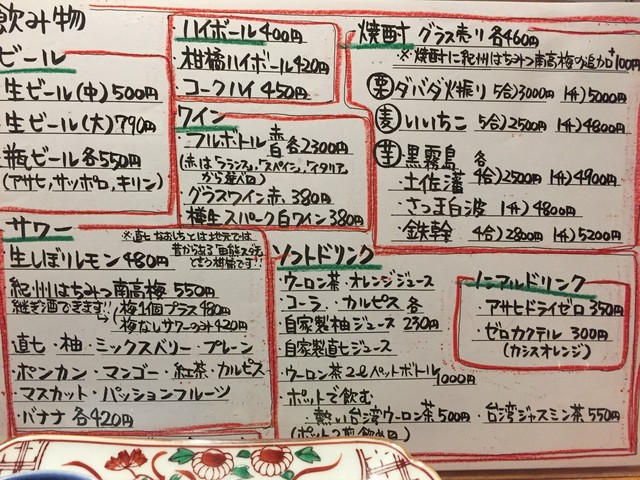 飲み物
ビール
生ビール(中) 500円
生ビール(大) 790円
瓶ビール各550円
(アサヒ,サッポロ,キリン)
ハイボール 400円
柑橘ハイボール 420円
コークハイ 450円
ワイン
フルボトル 赤白各2300円
(赤はフランス,スペイン,イタリア
から選べる)
グラスワイン赤. 380円
樽生スパーク白ワイン 380円
焼酎 グラス売り 各460円
※焼酎に紀州はちみつ南高梅の追加 +100円
栗 ダバダ火振り 5合)3000円 1升)5000円
麦 いいちこ 5合)2500円 1升)4800円
芋 黒霧島 各
・土佐藩 4合)2500円 1升)4900円
・さつま白波 1升)4800円
・鉄幹 4合)2800円 1升)5200円
サワー
※直七なおしちとは地元では
昔からある田熊スダチ
という柑橘です!!
生しぼりレモン 480円
紀州はちみつ南高梅 550円
継ぎ酒できます!!
梅1個プラス 480円
梅なしサワーのみ 420円
直七・柚・ミックスベリー・プレーン
・ポンカン・マンゴー・紅茶・カルピス
・マスカット・パッションフルーツ
・バナナ 各420円
ソフトドリンク
・ウーロン茶・オレンジジュース
・コーラ・カルピス 各
・自家製柚ジュース 230円
・自家製直七ジュース
・ウーロン茶2ℓペットボトル
1000円
・ポットで飲む
熱い台湾ウーロン茶 500円・台湾ジャスミン茶 550円
ノンアルドリンク
アサヒドライゼロ 350円
ゼロカクテル 300円
(カシスオレンジ)